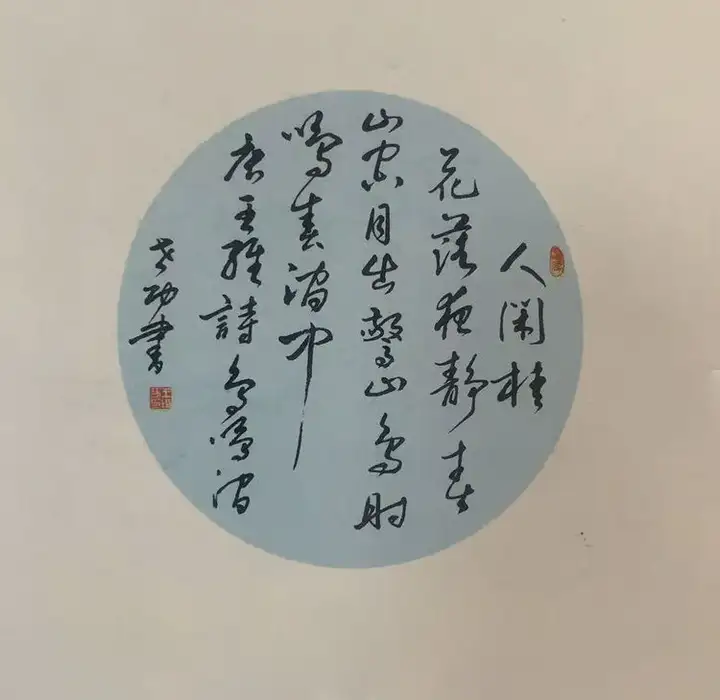 人閑桂
花落夜静春
山空月出驚山鳥時
鳴春澗中
唐王維詩鳥鳴澗
功書